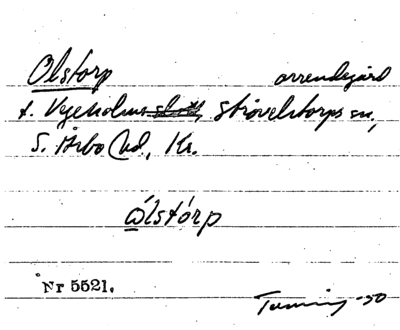 Olstorp arrendegård
t. Vegeholms slott, Strövelstorps sn,
S. Åsbo hd., Kr.
ώ̲lstórp
Nr 5521.
-50